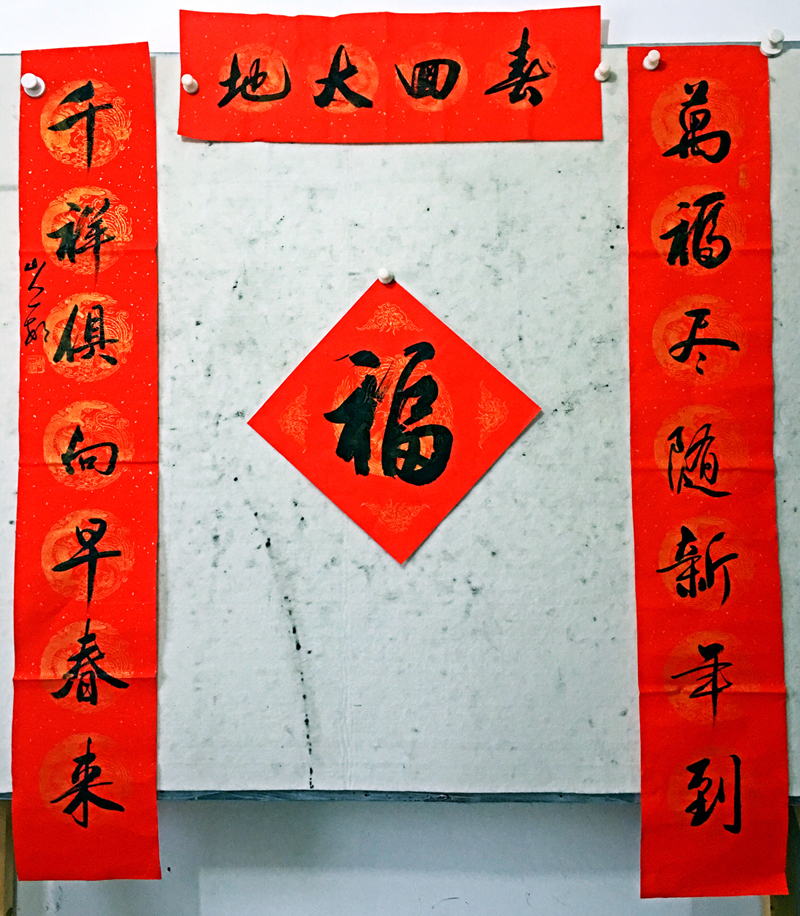 春回大地
萬福尽随新年到
千祥俱向早春来
福